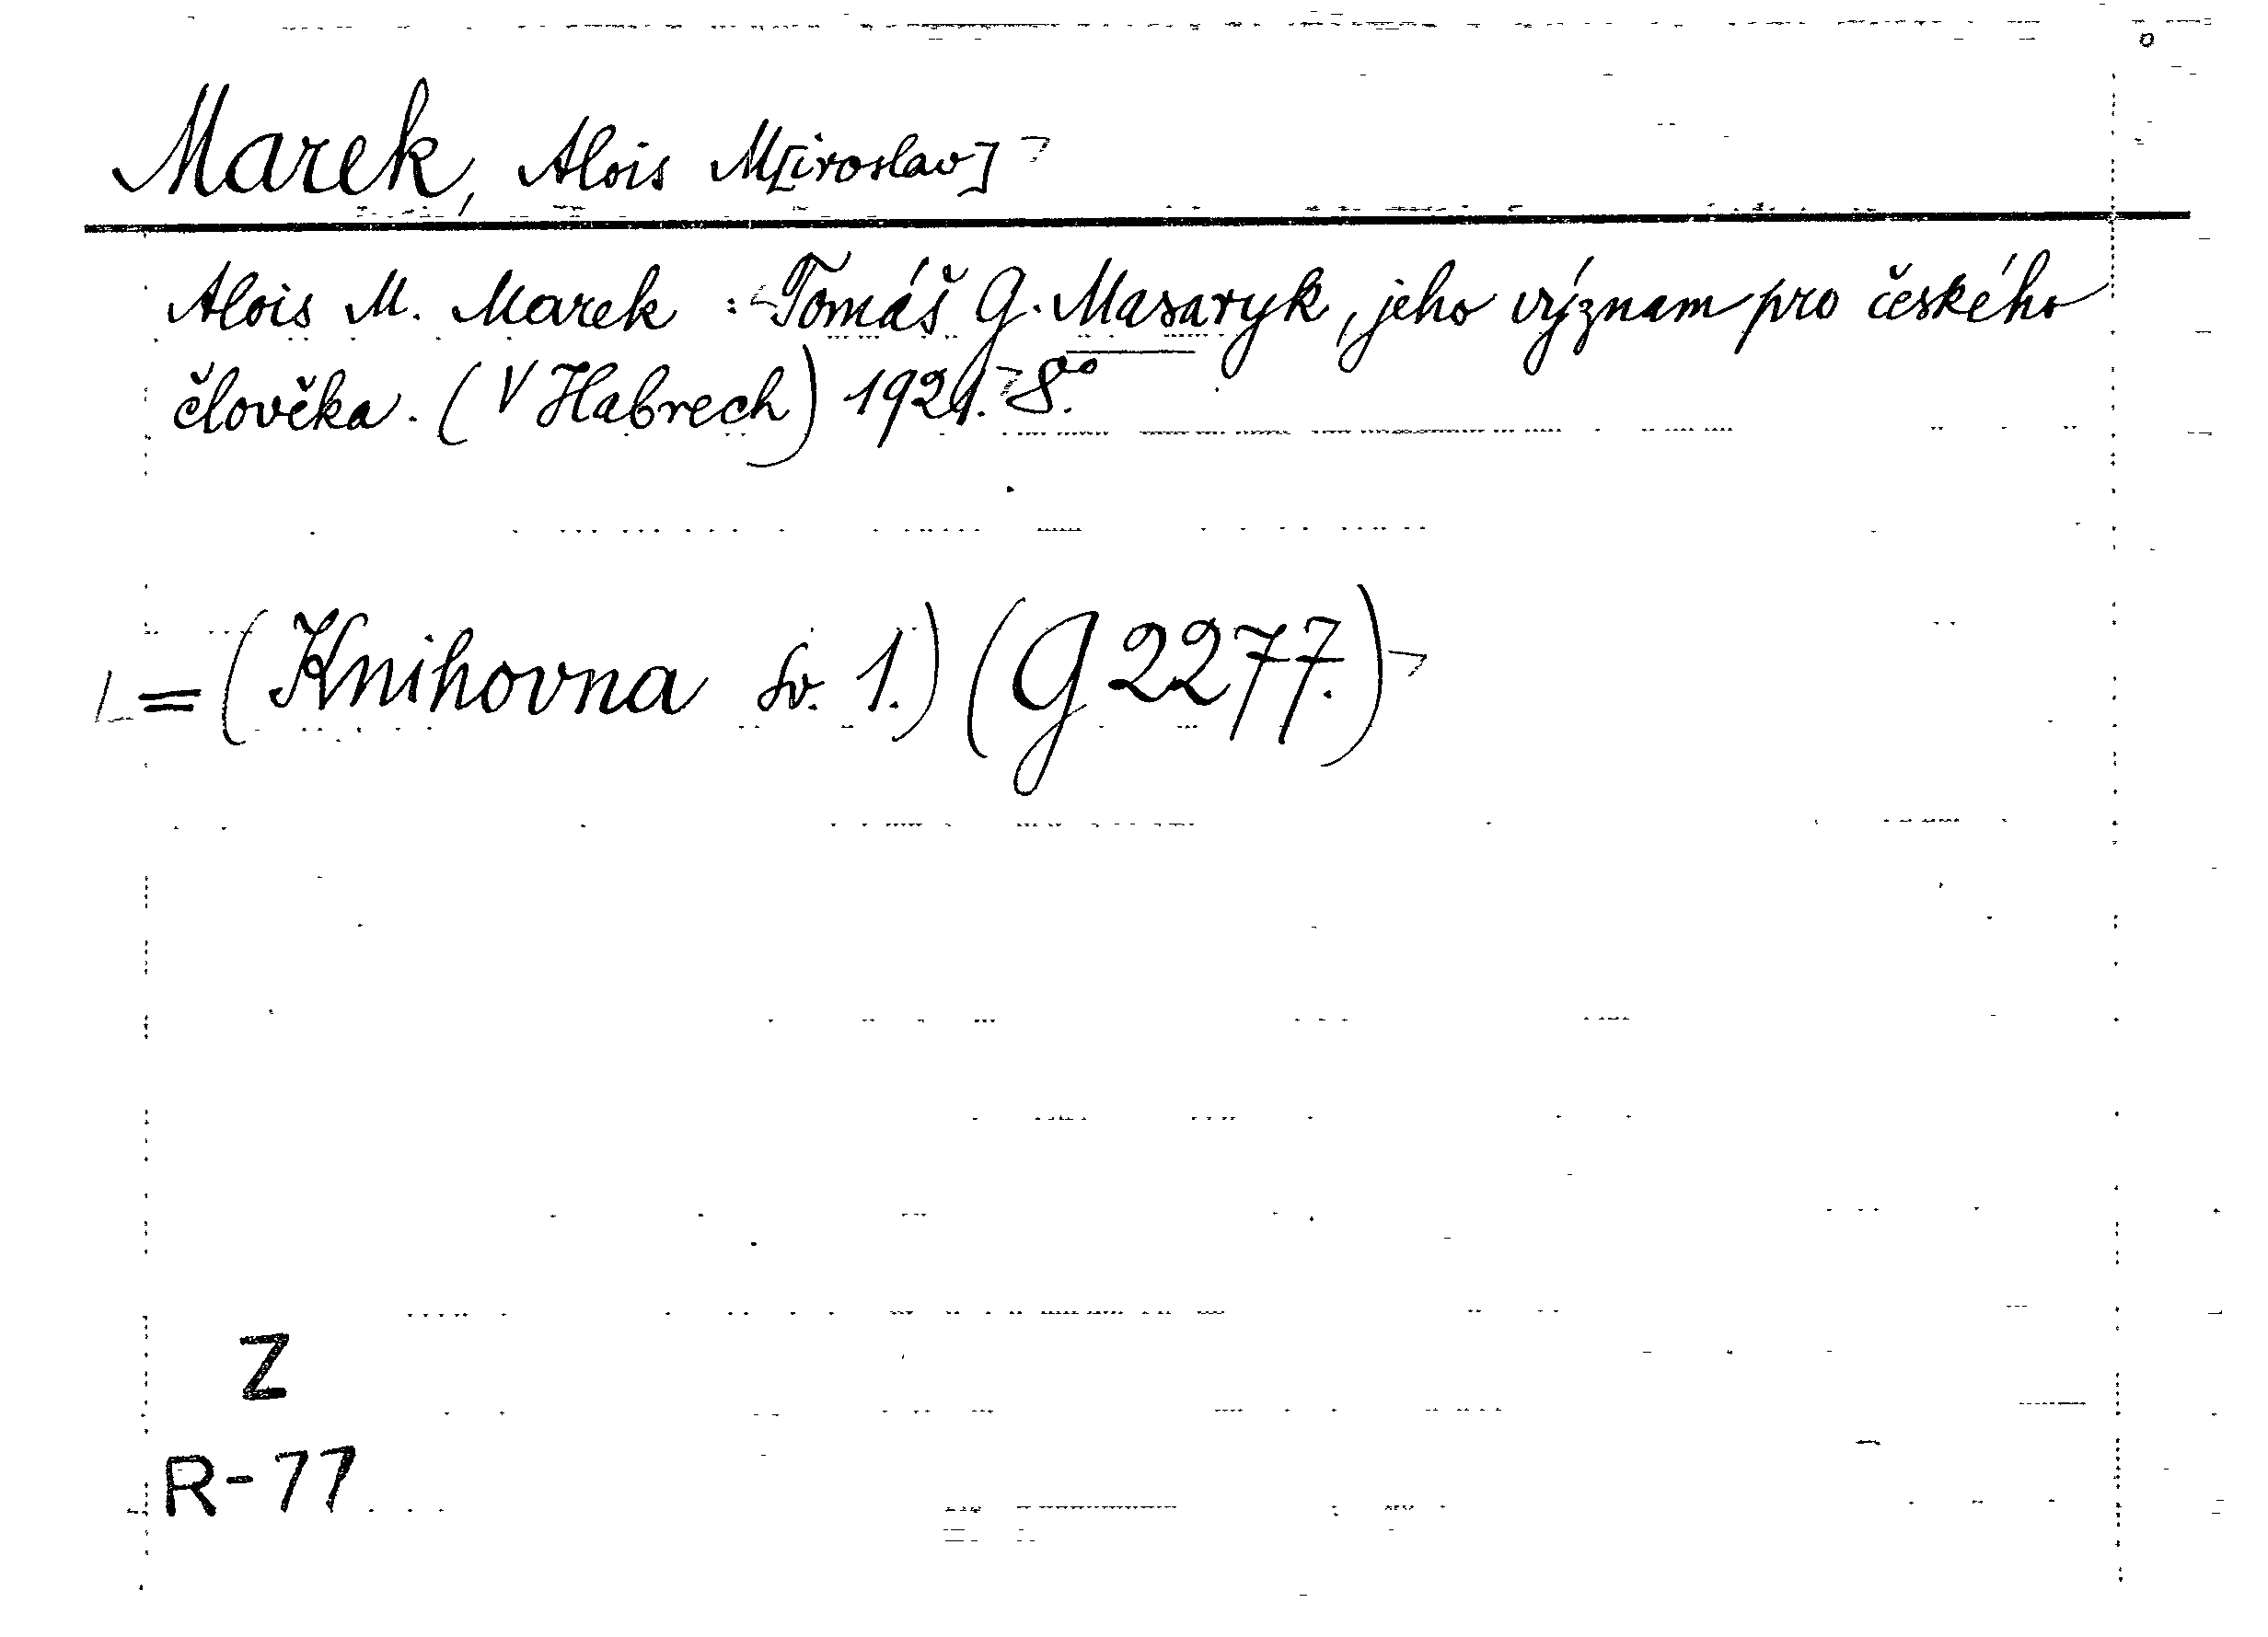 Marek, Alois M[iroslav]
Alois M. Marek : Tomáš G. Masaryk, jeho význam pro českého
člověka. (V Habrech) 1921. 8°.
= (Knihovna sv. 1.) (G 2277.)
Z
R-77